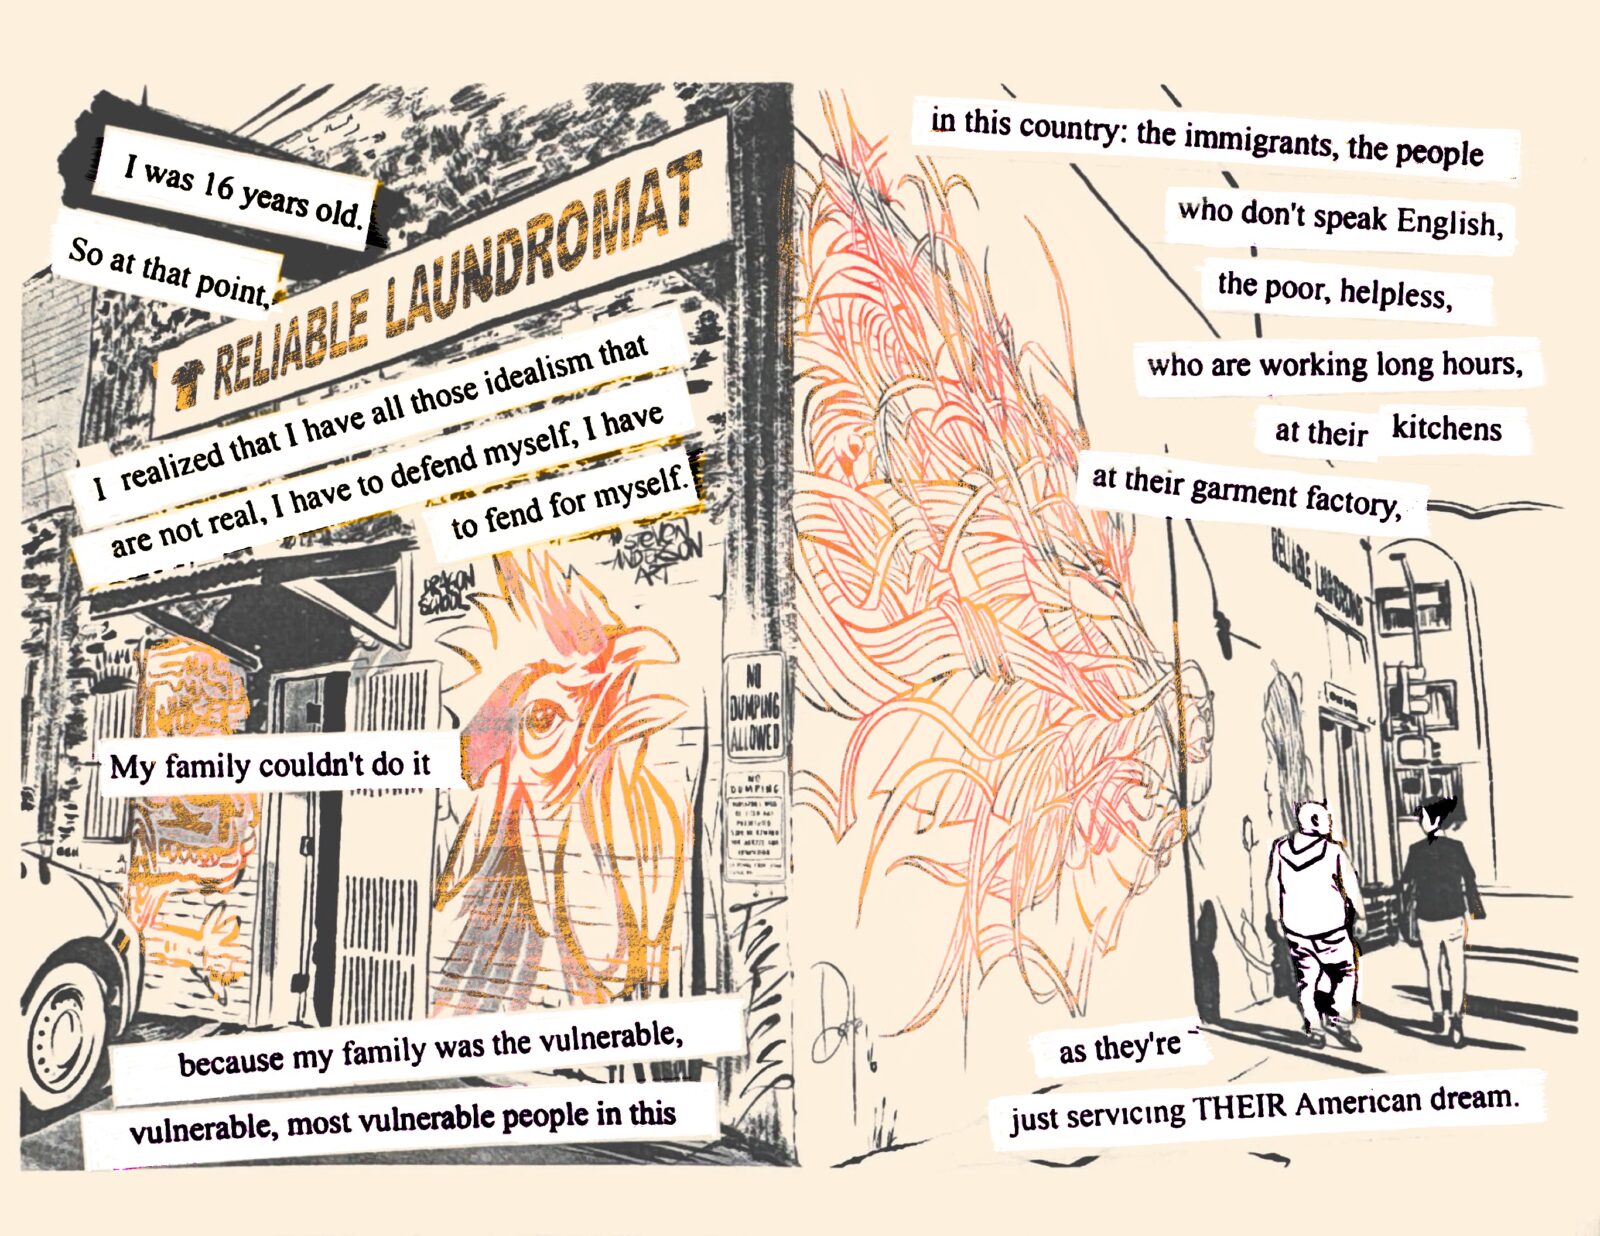 I was 16 years old.
So at that point,
RELIABLE LAUNDROMAT
I realized that I have all those idealism that
are not real, I have to defend myself, I have
to fend for myself.
DRAGON
SCHOOL
STEVEN
ANDERSON
ART
NO
DUMPING
ALLOWED
NO
DUMPING
My family couldn't do it
because my family was the vulnerable,
vulnerable, most vulnerable people in this
in this country: the immigrants, the people
who don't speak English,
the poor, helpless,
who are working long hours,
at their kitchens
at their garment factory,
RELIABLE LAUNDROM
as they're
just servicing THEIR American dream.